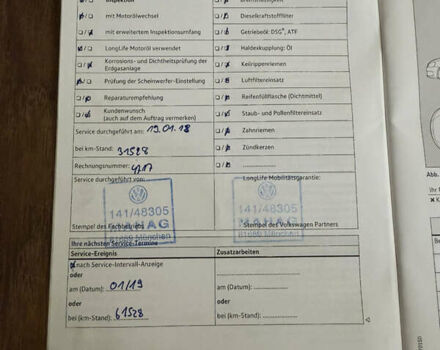 Inspektion
mit Motorölwechsel
mit erweitertem Inspektionsumfang
LongLife Motoröl verwendet
Korrosions- und Dichtheitsprüfung der
Erdgasanlage
Prüfung der Scheinwerfer-Einstellung
Reparaturempfehlung
Kundenwunsch
(auch auf dem Auftrag vermerken)
Service durchgeführt am: 19.01.18
bei km-Stand: 31528
Rechnungsnummer:
Bremsflüssigkeit
Dieselkraftstofffilter
Getriebeöl: DSG®, ATF
Haldexkupplung: Öl
Keilrippenriemen
Luftfiltereinsatz
Reifenfüllflasche (Dichtmittel)
Staub- und Pollenfiltereinsatz
Zahnriemen
Zündkerzen
Service durchgeführt von:
LongLife Mobilitätsgarantie:
141/48305
MAHAG
81689 München
141/48305
MAHAG
81689 München
Stempel des Fachbetriebs
Stempel des Volkswagen Partners
Ihre nächsten Service-Termine
Service-Ereignis
Zusatzarbeiten
nach Service-Intervall-Anzeige
oder
am (Datum): 01/19
oder
bei (km-Stand): 61528
oder
am (Datum):
oder
bei (km-Stand):
Abb.